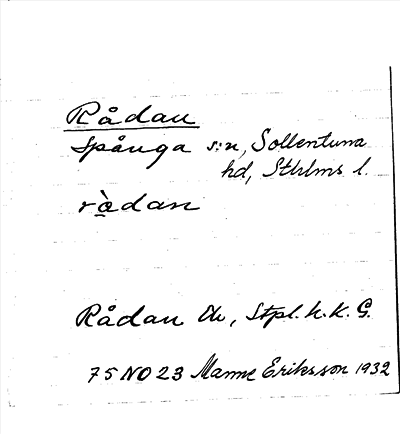 Rådan
Spånga s:n, Sollentuna
hd, Sthlms l.
rå̀dan
Rådan Ek, Stpl. h.k. G.
75 NO 23 Manne Eriksson 1932